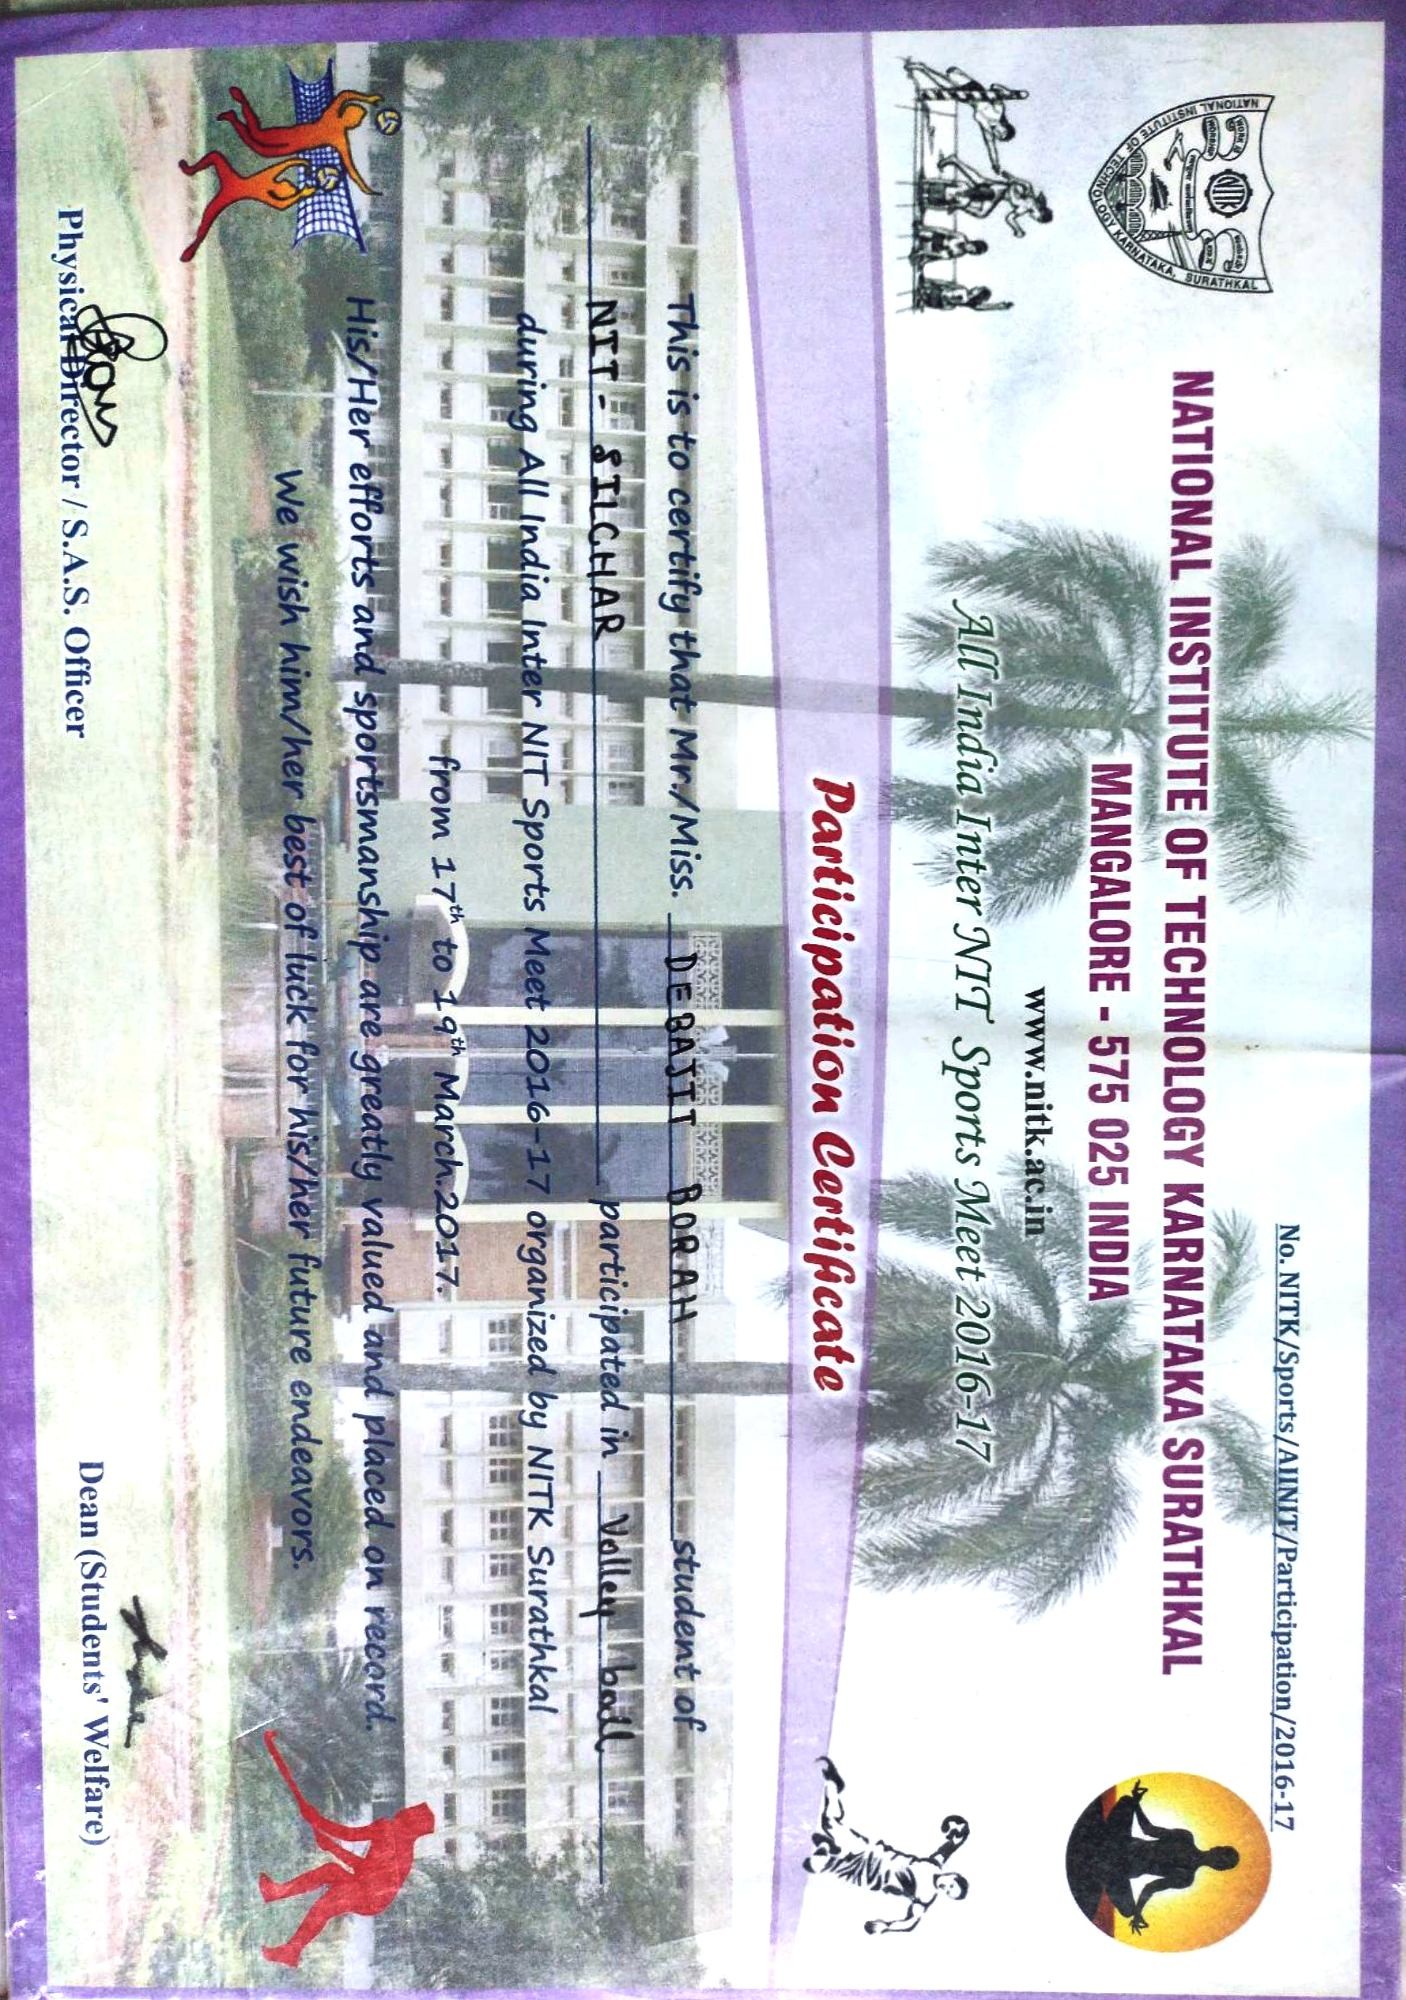 No. NITK/Sports/AIINIT/Participation/2016-17
NATIONAL INSTITUTE OF TECHNOLOGY KARNATAKA, SURATHKAL
WORK IS
WORSHIP
NITK
NATIONAL INSTITUTE OF TECHNOLOGY KARNATAKA SURATHKAL
MANGALORE - 575 025 INDIA
www.nitk.ac.in
All India Inter NIT Sports Meet 2016-17
Participation Certificate
This is to certify that Mr./Miss. DEBAJIT BORAH student of
NIT - SILCHAR participated in Volley ball
during All India Inter NIT Sports Meet 2016-17 organized by NITK Surathkal
from 17th to 19th March.2017.
His/Her efforts and sportsmanship are greatly valued and placed on record.
We wish him/her best of luck for his/her future endeavors.
Physical Director / S.A.S. Officer
Dean (Students' Welfare)